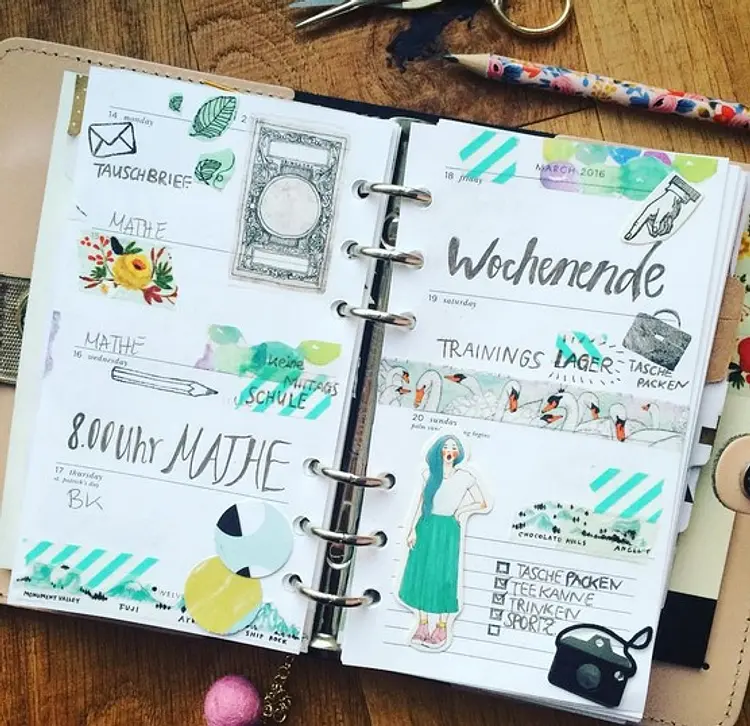 14 monday
TAUSCHBRIEF
MATHE
MATHE
16 wednesday
keine
MITTAGS
SCHULE
8.00 Uhr MATHE
17 thursday
st. patrick's day
BK
MONUMENT VALLEY
FUJI
SHIP ROCK
MARCH 2016
18 friday
Wochenende
19 saturday
TRAININGS LAGER
TASCHE
PACKEN
20 sunday
CHOCOLATE HILLS
TASCHE PACKEN
TEEKANNE
TRINKEN
SPORT